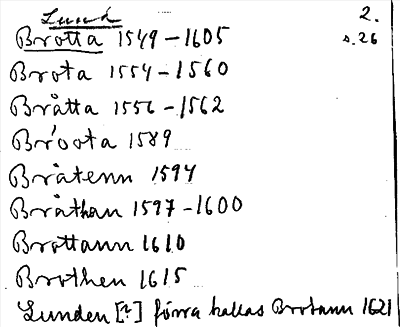 Lund 2.
Brotta 1549-1605 s.26
Brota 1554-1560
Bråtta 1556-1562
Broota 1589
Bråtenn 1594
Bråthan 1597-1600
Brottann 1610
Brothen 1615
Lunden [?] förra kallas Brotann 1621